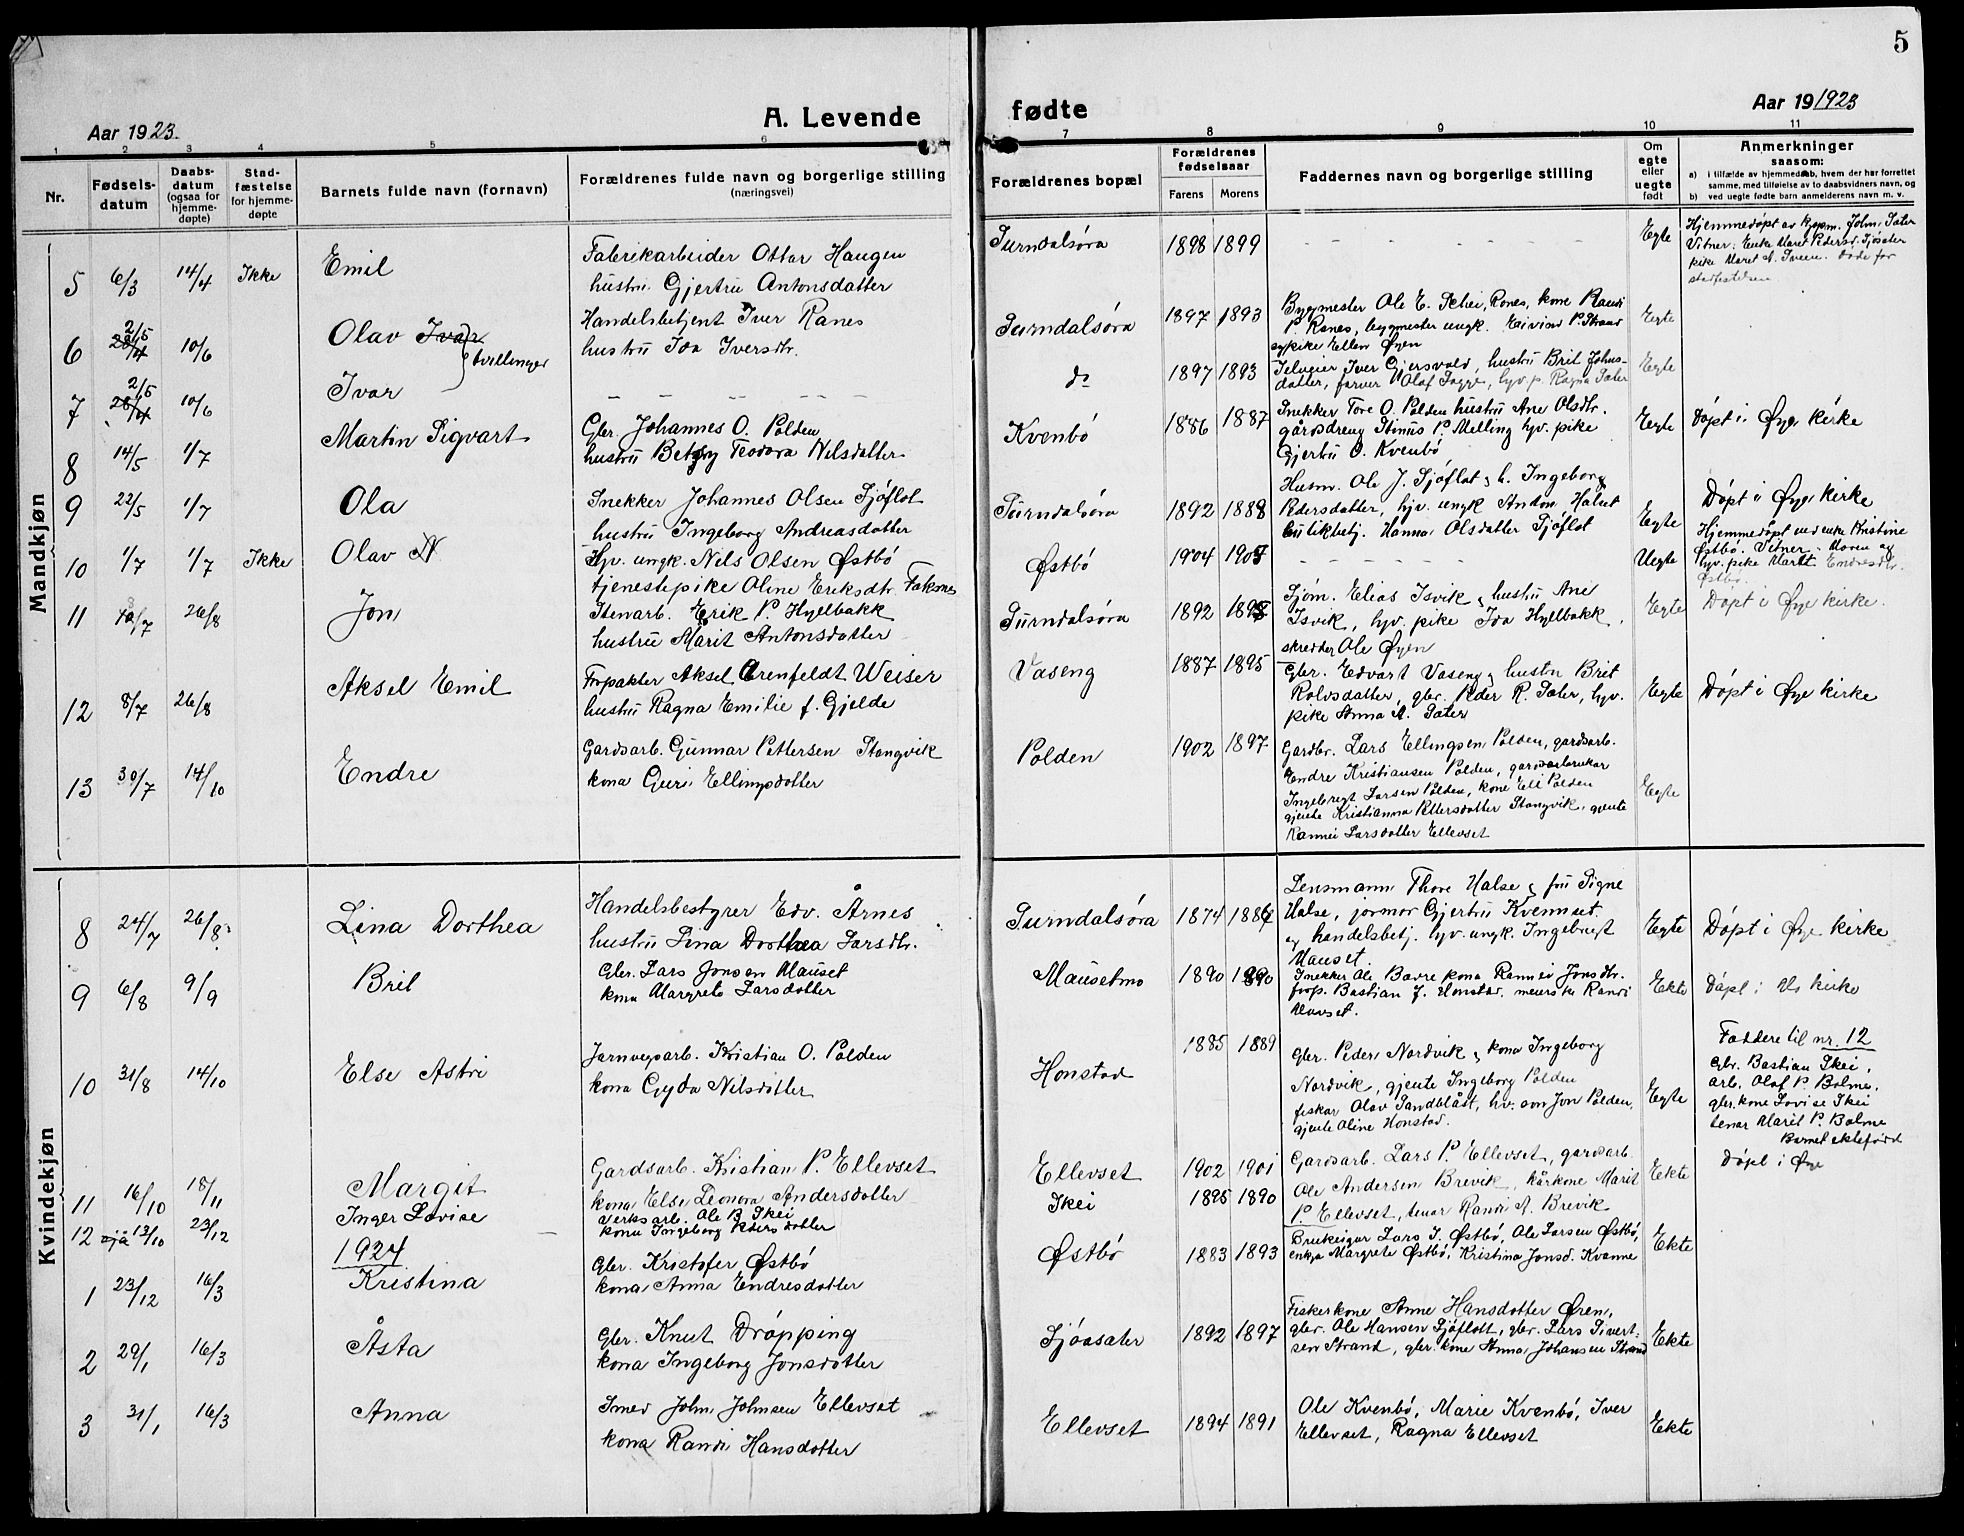 5
Aar 1923.
A. Levende
fødte
Aar 191923
1 2 3 4 5 6 7 8 9 10 11
Nr.
Fødselsdatum
Daabsdatum (ogsaa for hjemmedøpte)
Stadfæstelse for hjemmedøpte
Barnets fulde navn (fornavn)
Forældrenes fulde navn og borgerlige stilling
(næringsvei)
Forældrenes bopæl
Forældrenes fødselsaar
Farens Morens
Faddernes navn og borgerlige stilling
Om egte eller uegte født
Anmerkninger
saasom:
a) i tilfælde av hjemmedaab, hvem der har forrettet
samme, med tilføielse av to daabsvidners navn, og
b) ved uegte fødte barn anmelderens navn m. v.
Mandkjøn
5 6/3 14/4 Ikke Emil
Fabrikarbeider Ottar Haugen
hustru Gjertru Antonsdatter
Surndalsøra 1898 1899 Egte
Hjemmedøpt av kjøpm. John Sæter
Vitner: Enke Maret Pedersd. Sjøsæter
pike Maret A. Sveen. Døde før
stadfestelsen
6 2/5 28/4 10/6 Olav Ivar
tvillinger
Handelsbetjent Iver Ranes
hustru Ida Iversdtr.
Surndalsøra 1897 1893
Bygmester Ole E. Schei, Ranes, kone Randi
P. Ranes, bygmester ungk. Eivind P. Strand
sypike Ellen Øyen
Egte
7 2/5 28/4 10/6 Ivar
do 1897 1893
Selveier Iver Gjersvold, hustru Brit Johns-
datter, farver Olaf Sagge, hjv. p. Ragna Sæter
Egte
8 14/5 1/7 Martin Sigvart
Gbr. Johannes O. Polden
hustru Betzy Teodora Nilsdatter
Kvenbö 1886 1887
Snekker Tore O. Polden hustru Ane Olsdtr.
gårdsdreng Stinus P. Melling hjv. pike
Gjertru O. Kvenbö
Egte Døpt i Øye kirke
9 22/5 1/7 Ola
Snekker Johannes Olsen Sjøflot
hustru Ingeborg Andreasdatter
Surndalsøra 1892 1888
Husm. Ole J. Sjøflot & h. Ingeborg
Pedersdatter, hjv. ungk. Anton Halset
butikkbetj. Hanna Olsdatter Sjøflot
Egte Døpt i Øye kirke
10 1/7 1/7 Ikke Olav N
Hjv. ungk. Nils Olsen Østbö
tjenestepike Oline Eriksdtr. Faksnes
Østbö 1904 1905 Uegte
Hjemmedøpt ved enke Kristine
Østbö. Vitner: Maren og
hjv. pike Marit Endresdtr.
Østbö.
11 8/7 26/8 Jon
Stenarb. Erik P. Hyllbakk
hustru Marit Antonsdatter
Surndalsøra 1892 1895
Sjøm. Elias Isvik & hustru Ane
Isvik, hjv. pike Ida Hyllbakk,
skredder Ole Øyen
Egte Døpt i Øye kirke.
12 8/7 26/8 Aksel Emil
Forpakter Aksel Arenfeldt Weiser
hustru Ragna Emilie f. Gjelde
Vaseng 1887 1895
Gbr. Edvart Vaseng & hustru Brit
Rolvsdatter, gbr. Peder R. Sæter, hjv.
pike Anna A. Sæter
Egte Døpt i Øye kirke
13 30/7 14/10 Endre
Gardsarb. Gunnar Pettersen Stangvik
kona Guri Ellingsdotter
Polden 1902 1897
Gardbr. Lars Ellingsen Polden, gardsarb.
Endre Kristiansen Polden, gardsarbrukar
Ingebregt Larsen Polden, kone Eli Polden
gjente Kristianna Pettersdotter Stangvik, gjente
Rannei Larsdotter Ellevset
Egte
Kvindekjøn
8 24/7 26/8 Lina Dorthea
Handelsbestyrer Edv. Årnes
hustru Lina Dorthea Larsdtr.
Surndalsøra 1874 1886
Lensmann Thore Halse & fru Signe
Halse, jormor Gjertru Kvennset
og handelsbetj. hjv. ungk. Ingebregt
Mauset.
Egte Døpt i Øye kirke
9 6/8 9/9 Brit
Gbr. Lars Jonsen Mauset
kona Margrete Larsdotter
Mausetmo 1890 1890
Snekker Ole Bævre kona Rannei Jonsdtr.
forp. Bastian J. Honstad, meierske Randi
Mauset.
Ekte Døpt i Mo kirke
10 31/8 14/10 Else Astri
Jarnvegsarb. Kristian O. Polden
kona Gyda Nilsdotter
Honstad 1885 1889
Gbr. Peder Nordvik & kona Ingeborg
Nordvik, gjente Ingeborg Polden
fiskar Olav Sandblåst, hv. son Jon Polden,
gjente Oline Honstad.
Egte
Faddere til nr. 12
Gbr. Bastian Skei,
arb. Olaf P. Bolme,
gbr. kone Lovise Skei
tenar Marit P. Bolme
Barnet ektefødd
11 16/10 18/11 Margit
Gardsarb. Kristian P. Ellevset
kona Else Leonora Andersdotter
Ellevset 1902 1901
Gardsarb. Lars P. Ellevset, gardsarb.
Ole Andersen Brevik, kårkone Marit
P. Ellevset, tenar Randi A. Brevik
Ekte Døpt i Øye
12 13/10 23/12 Inger Lovise
Verksarb. Ole B. Skei
kona Ingeborg Pedersdotter
Skei 1895 1890
1924
1 23/12 16/3 Kristina
Gbr. Kristofer Østbö
kona Anna Endresdotter
Østbö 1883 1893
Brukeigar Lars I. Østbö, Ole Larsen Østbö,
enkja Margrete Østbö, Kristina Jonsd. Kvanne
Ekte
2 29/1 16/3 Åsta
Gbr. Knut Drøpping
kona Ingeborg Jonsdotter
Sjøasæter 1892 1897
Fiskerkone Anne Hansdotter Øren,
gbr. Ole Hansen Sjøflott, gbr. Lars Sivert-
sen Strand, gbr. kone Anna Johansen Strand
Ekte
3 31/1 16/3 Anna
Smed John Johnsen Ellevset
kona Randi Hansdotter
Ellevset 1894 1891
Ole Kvenbö, Marie Kvenbö, Iver
Ellevset, Ragna Ellevset
Ekte